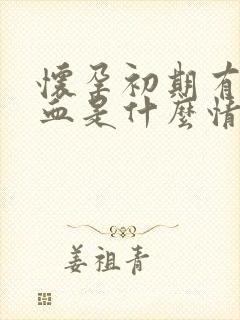 懷孕初期有
血是什麼情
姜祖青